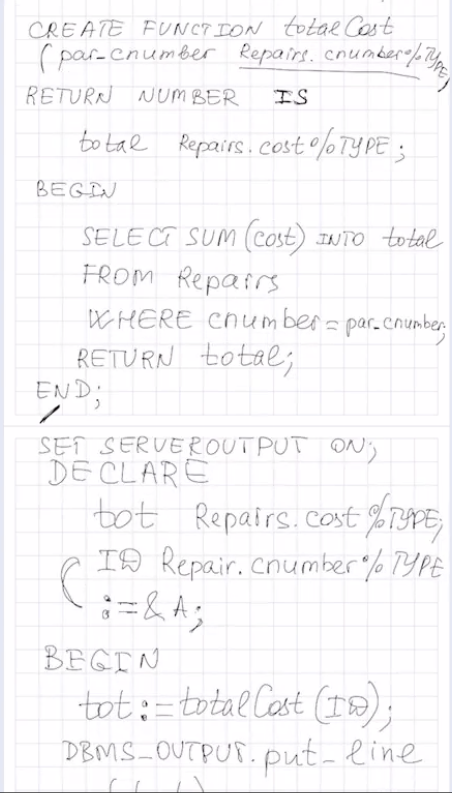 CREATE FUNCTION totalCost
(par_cnumber Repairs.cnumber%TYPE)
RETURN NUMBER IS
total Repairs.cost%TYPE;
BEGIN
SELECT SUM(cost) INTO total
FROM Repairs
WHERE cnumber=par_cnumber;
RETURN total;
END;
/
SET SERVEROUTPUT ON;
DECLARE
tot Repairs.cost%TYPE;
ID Repair.cnumber%TYPE
:=&A;
BEGIN
tot:=totalCost(ID);
DBMS_OUTPUT.put_line